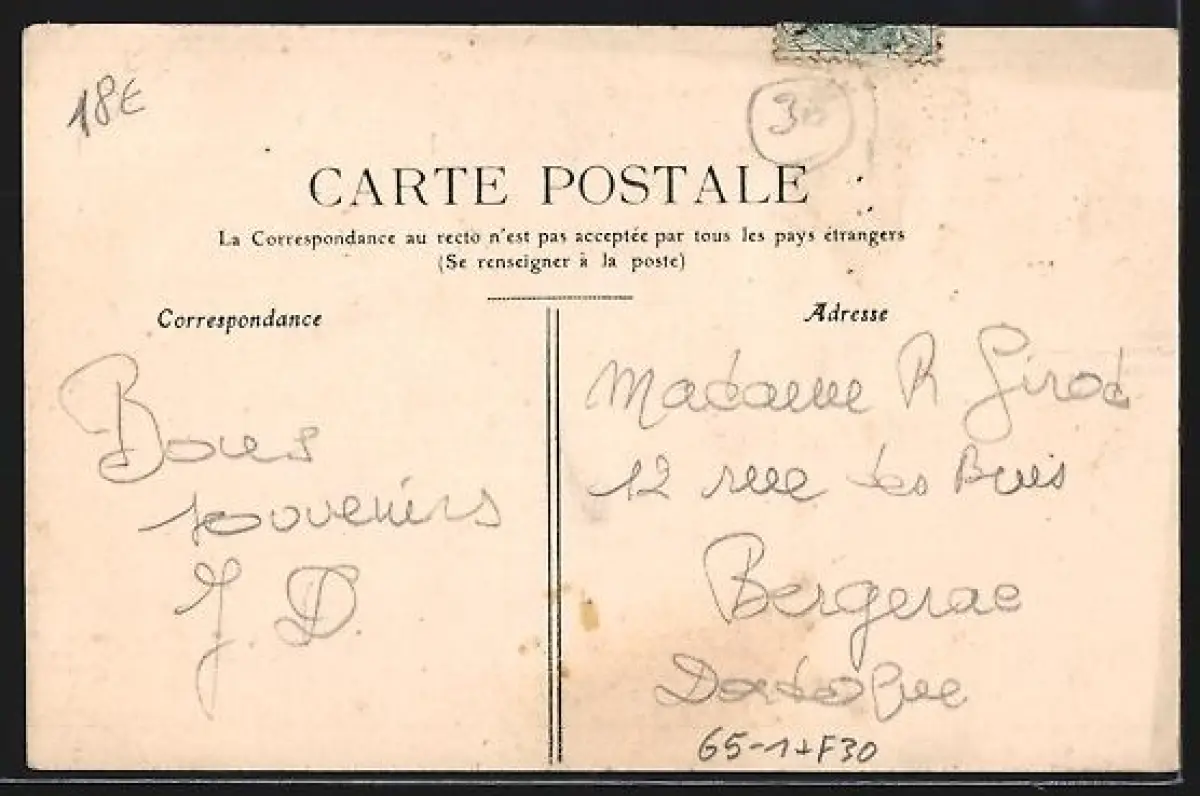 18E
3
CARTE POSTALE
La Correspondance au recto n'est pas acceptée par tous les pays étrangers
(Se renseigner à la poste)
Correspondance
Bons
souvenirs
J. D.
Adresse
Madame R Girod
12 rue des Buis
Bergerac
Dordogne
65-1+F30